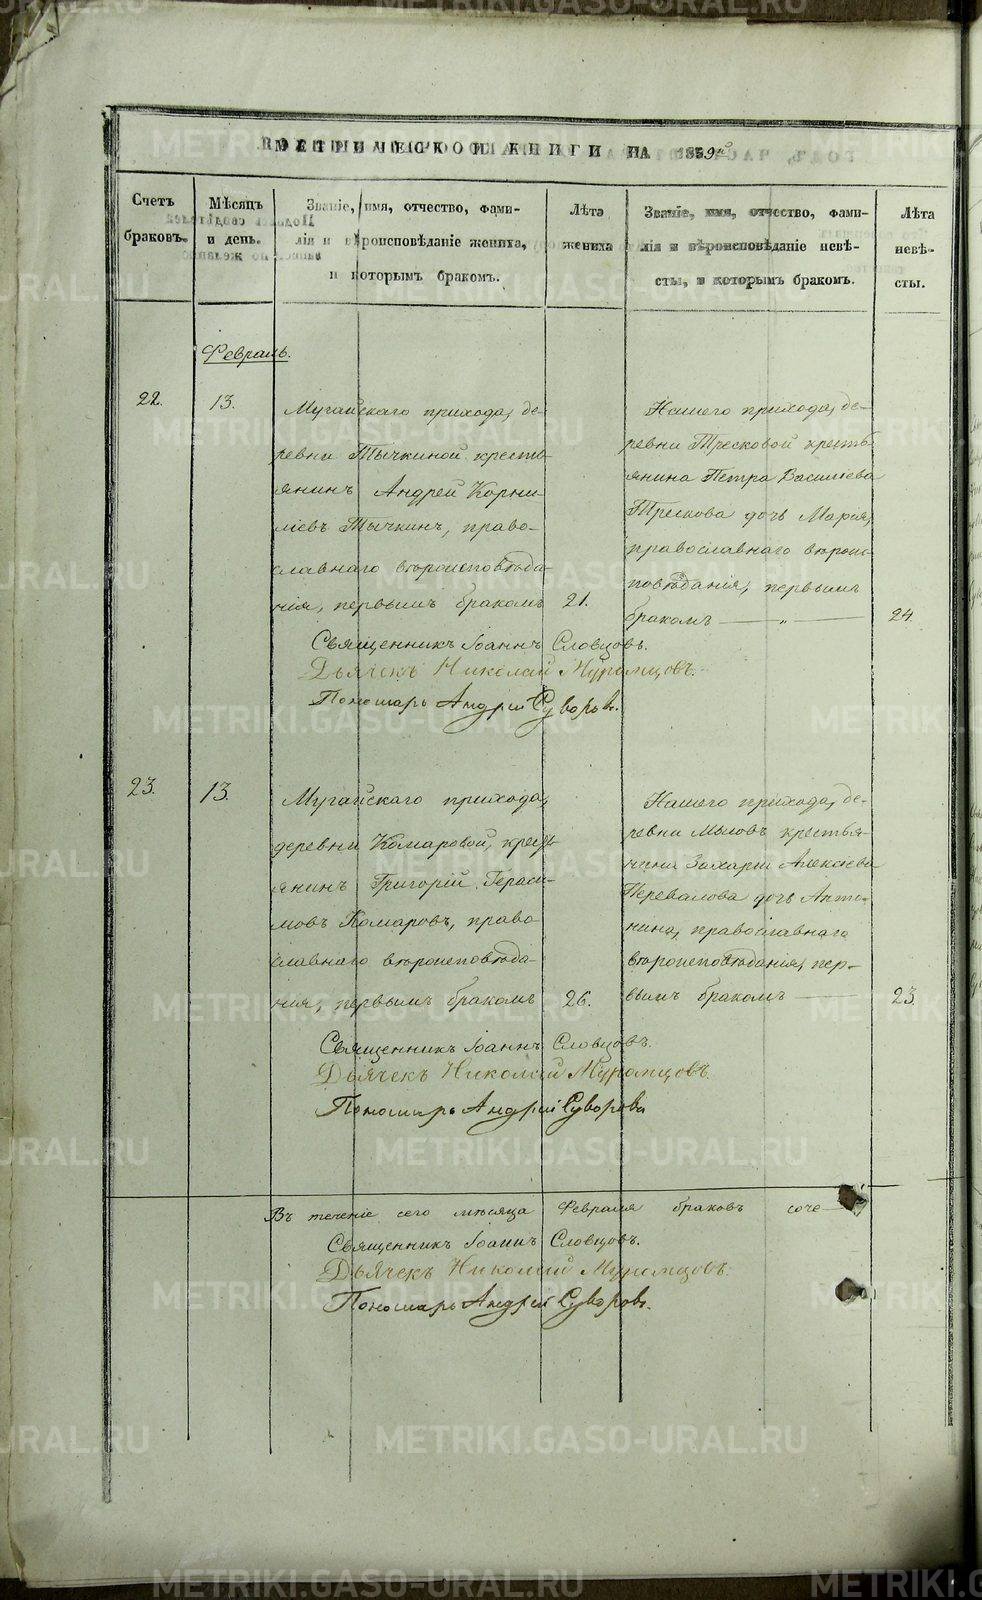 МЕТРИЧЕСКОЙ КНИГИ НА 1859й
Счетъ браковъ.
Мѣсяцъ и день.
Званіе, имя, отчество, фами-
лія и вѣроисповѣданіе жениха,
и которымъ бракомъ.
Лѣта жениха
Званіе, имя, отчество, фами-
лія и вѣроисповѣданіе невѣ-
сты, и которымъ бракомъ.
Лѣта невѣ-
сты.
Февраль.
22.
13.
Мугайскаго прихода, де-
ревни Тычкиной кресть-
янинъ Андрей Корни-
ліевъ Тычкинъ, право-
славнаго вѣроисповѣда-
нія, первымъ бракомъ
21.
Нашего прихода, де-
ревни Тресковой кресть-
янина Петра Василіева
Трескова дочь Марія,
православнаго вѣроис-
повѣданія, первымъ
бракомъ — „ —
24.
Священникъ Іоаннъ Словцовъ.
Дьячекъ Николай Муромцовъ.
Пономарь Андрей Суворовъ.
23.
13.
Мугайскаго прихода,
деревни Комаровой, крест-
янинъ Григорій Гераси-
мовъ Комаровъ, право-
славнаго вѣроисповѣда-
нія, первымъ бракомъ
26.
Нашего прихода, де-
ревни Мысовъ крестья-
нина Захаріи Алексіева
Перевалова дочь Анто-
нина, православнаго
вѣроисповѣданія, пер-
вымъ бракомъ —
23.
Священникъ Іоаннъ Словцовъ.
Дьячекъ Николай Муромцовъ.
Пономарь Андрей Суворовъ
Въ теченіе сего мѣсяца Февраля браковъ соче-
Священникъ Іоаннъ Словцовъ.
Дьячекъ Николай Муромцовъ.
Пономарь Андрей Суворовъ.
METRIKI.GASO-URAL.RU